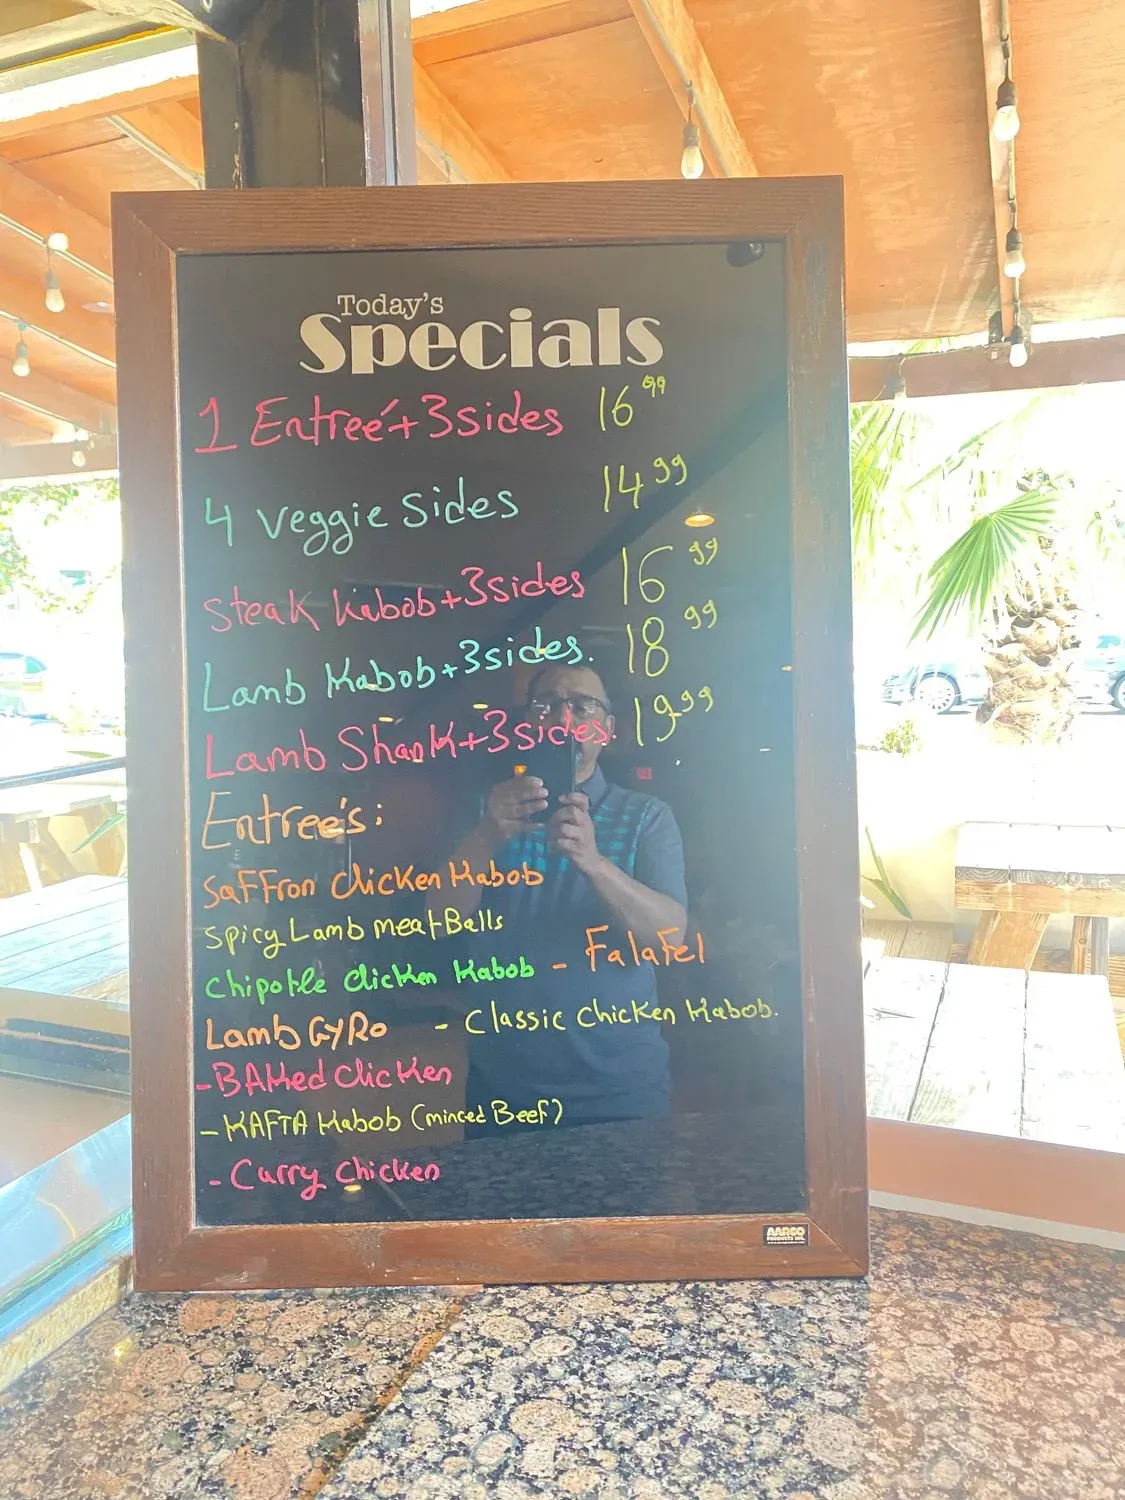 Today's
Specials
1 Entreé + 3 sides 16 99
4 veggie sides 14 99
Steak kabob + 3 sides 16 99
Lamb Kabob + 3 sides. 18 99
Lamb Shank + 3 sides. 19 99
Entreé's:
Saffron chicken Kabob
Spicy Lamb meat Balls
Chipotle chicken Kabob - Falafel
Lamb GYRO - Classic Chicken Kabob.
- BAKed chicken
- KAFTA Kabob (minced Beef)
- Curry chicken
AARCO
PRODUCTS INC.